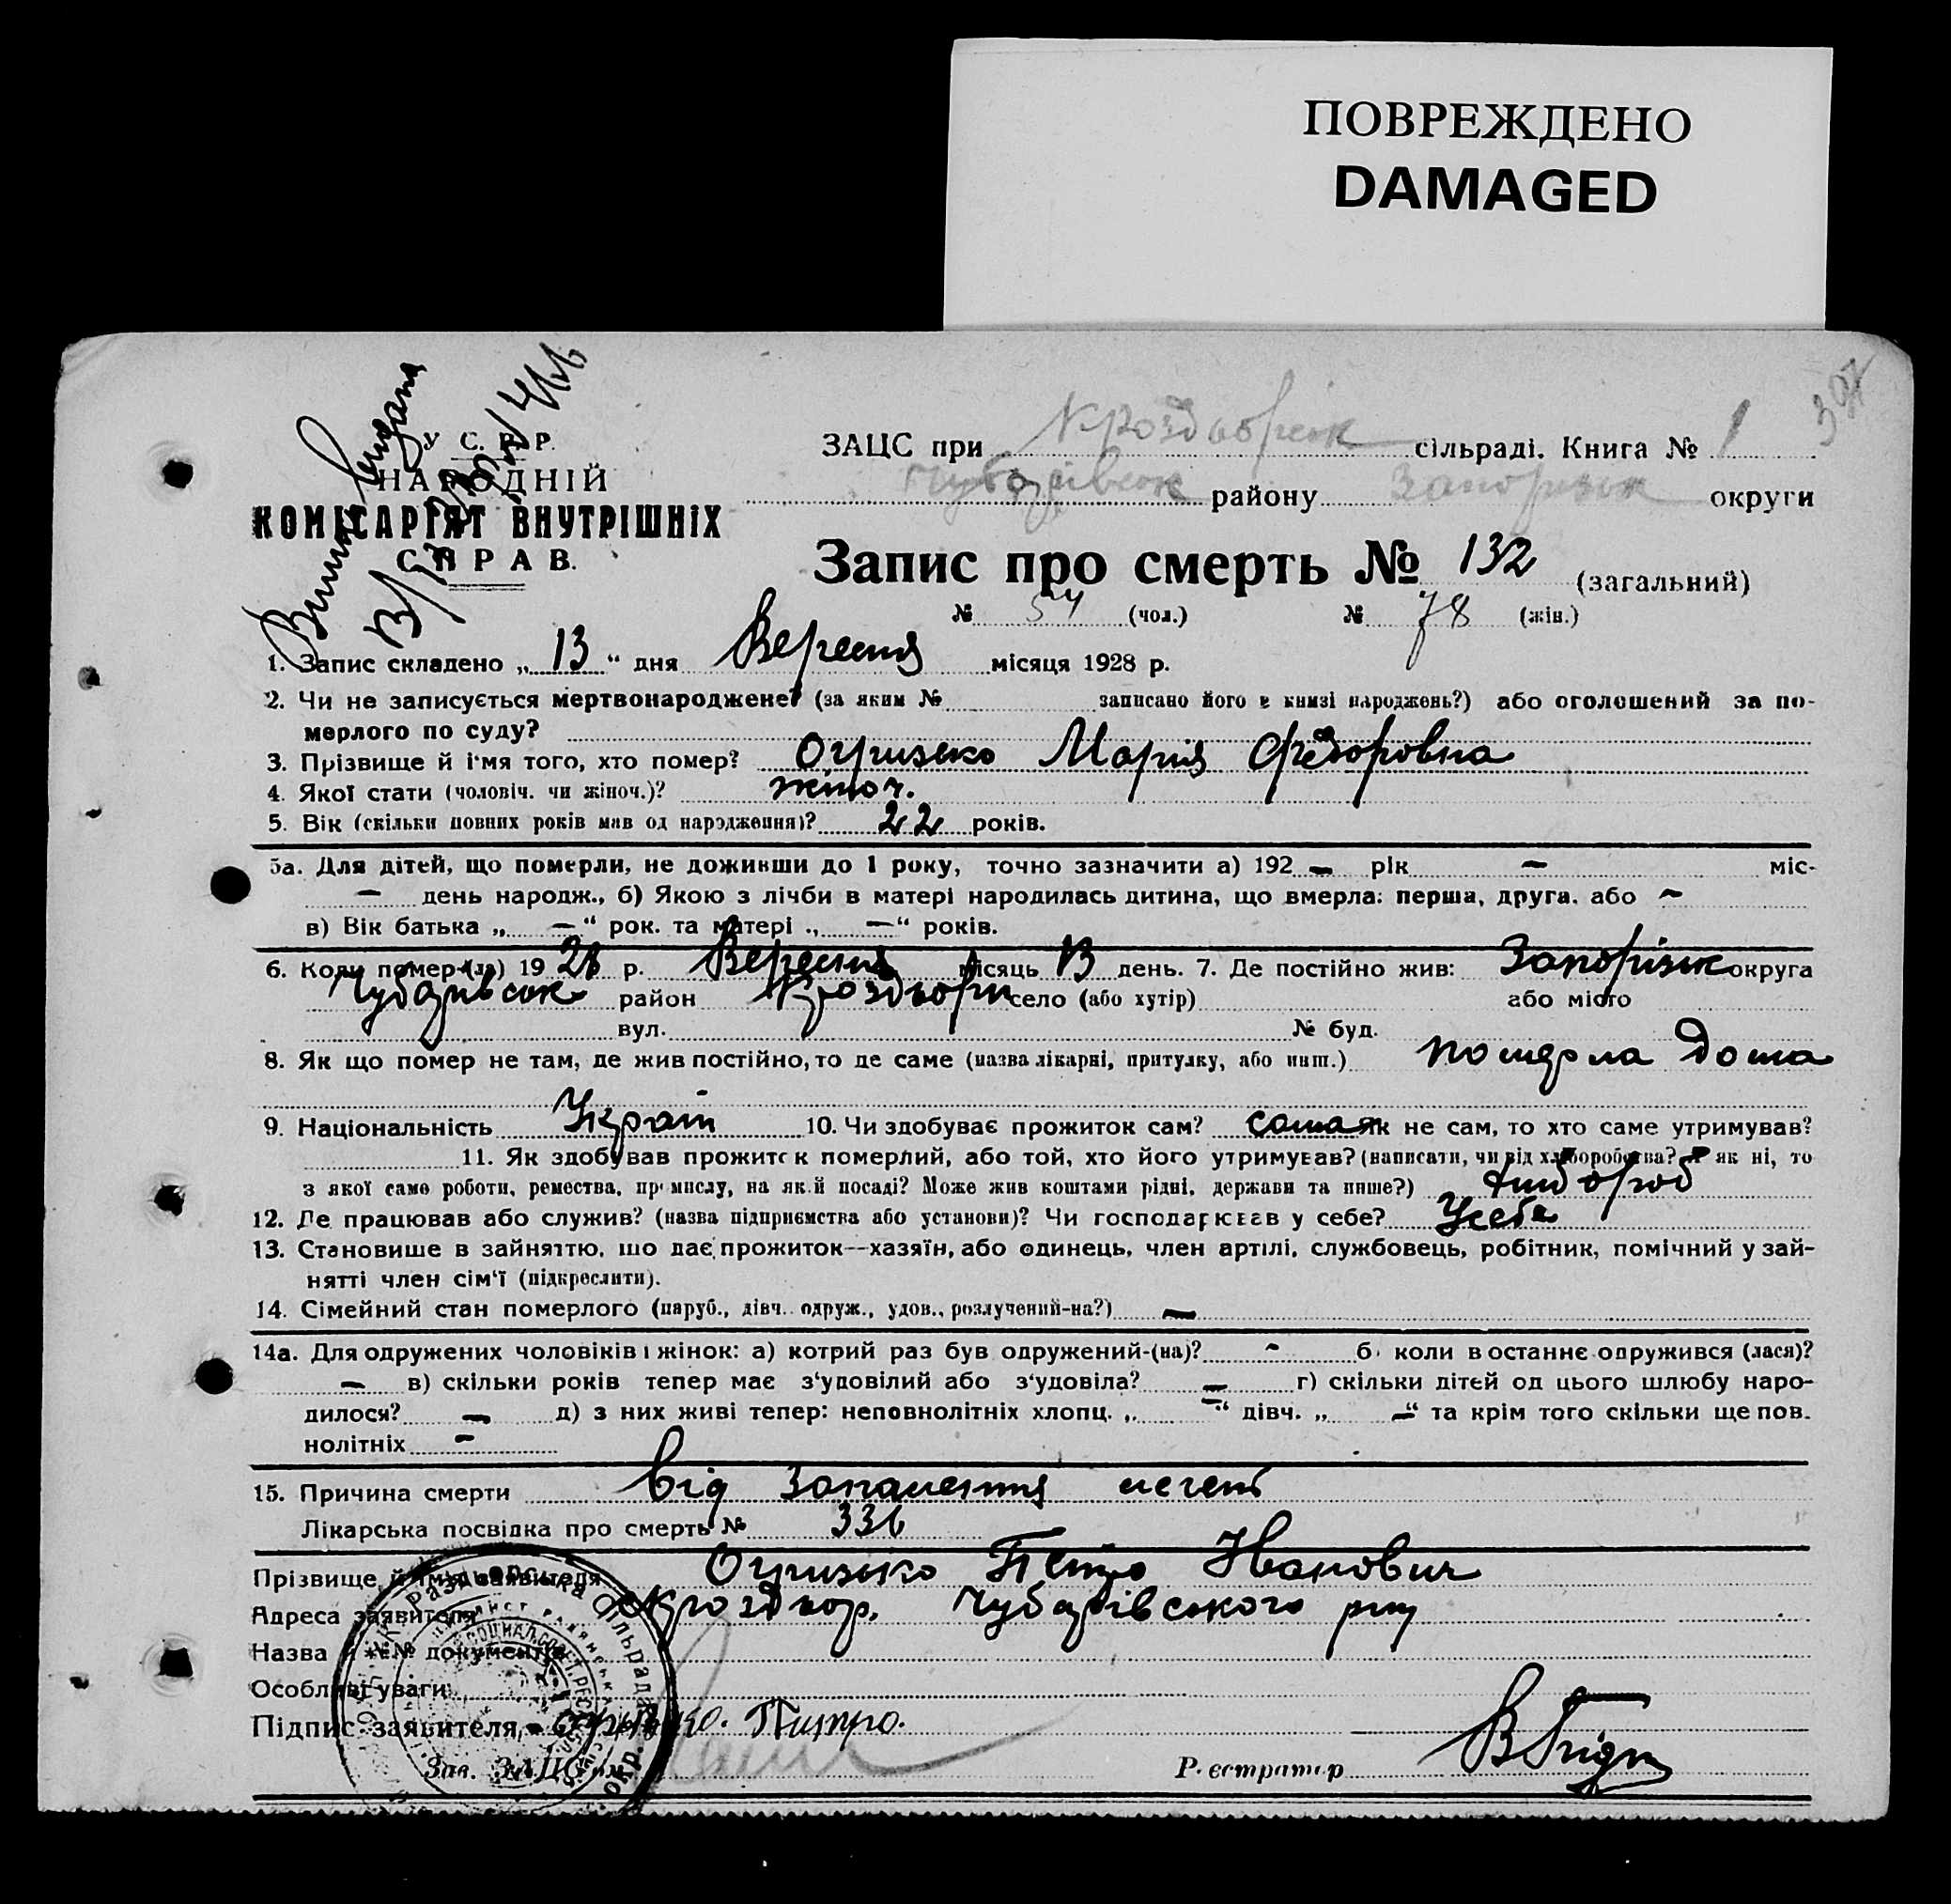 ПОВРЕЖДЕНО
DAMAGED
У. С. Р. Р.
НАРОДНІЙ
КОМІСАРІЯТ ВНУТРІШНІХ
СПРАВ.
ЗАЦС при Кроздворськ сільраді. Книга № 1
Чубарівськ району Запорізьк округи
Запис про смерть № 132 (загальний)
№ 54 (чол.) № 78 (жін.)
1. Запис складено „ 13 “ дня Вересня місяця 1928 р.
2. Чи не записується мертвонароджене? (за яким № записано його в книзі народжень?) або оголошений за по-
мерлого по суду?
3. Прізвище й ім'я того, хто помер? Огризько Мария Фёдоровна
4. Якої стати (чоловіч. чи жіноч.)? жіноч.
5. Вік (скільки повних років мав од народження)? 22 років.
5а. Для дітей, що померли, не доживши до 1 року, точно зазначити а) 192 – рік – міс-
– день народж., б) Якою з лічби в матері народилась дитина, що вмерла: перша, друга, або –
в) Вік батька „ – “ рок. та матері „ – “ років.
6. Коли помер-(ла) 19 28 р. Вересня місяць 13 день. 7. Де постійно жив: Запорізьк округа
Чубарівськ район Кроздвори село (або хутір) або місто
вул. № буд.
8. Як що помер не там, де жив постійно, то де саме (назва лікарні, притулку, або инш.) померла дома
9. Національність Україн 10. Чи здобуває прожиток сам? сама як не сам, то хто саме утримував?
11. Як здобував прожиток померлий, або той, хто його утримував? (написати, чи від хліборобства? А як ні, то
з якої само роботи, ремества, промислу, на якій посаді? Може жив коштами рідні, держави та инше?) хлибороб
12. Де працював або служив? (назва підприємства або установи)? Чи господарював у себе? Усебе
13. Становище в зайняттю, що дає прожиток—хазяїн, або одинець, член артілі, службовець, робітник, помічний у зай-
нятті член сім'ї (підкреслити).
14. Сімейний стан померлого (паруб., дівч. одруж., удов., розлучений-на?) –
14а. Для одружених чоловіків і жінок: а) котрий раз був одружений-(на)? – б) коли в останнє одружився (лася)?
– в) скільки років тепер має з'удовілий або з'удовіла? – г) скільки дітей од цього шлюбу наро-
дилося? – д) з них живі тепер: неповнолітніх хлопц. „ – “ дівч. „ – “ та крім того скільки ще пов-
нолітніх –
15. Причина смерти від запалення легені
Лікарська посвідка про смерть № 336
Прізвище й ім'я заявителя Огризько Петро Іванович
Адреса заявителя Кроздвор. Чубарівського рну
Назва й № документів
Особливі уваги
Підпис заявителя Огризько. Питро.
Зав. ЗАЦС'ом
Реєстратор